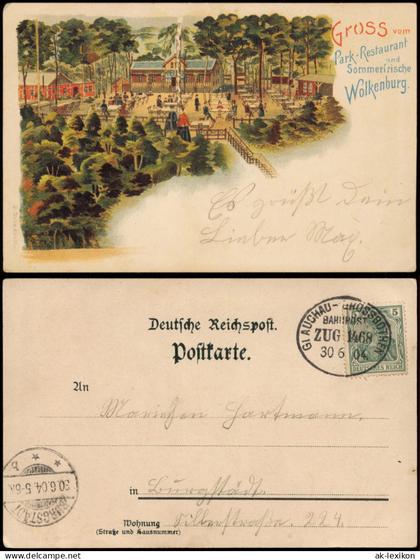 Gruss vom
Park-Restaurant
und
Sommerfrische
Wolkenburg.
Es grüßt Dein
Lieber Max.
Deutsche Reichspost.
Postkarte.
GLAUCHAU-GROSSBOTHEN
BAHNPOST
ZUG 1468
30 6 04
5
DEUTSCHES REICH
An
Mariechen Hartmann.
BURGSTÄDT
30.6.04.5-6N.
* b *
in Burgstädt.
Wohnung Silberstraße. 224.
(Straße und Hausnummer)
© ak-lexikon - https://ak-lexikon.de